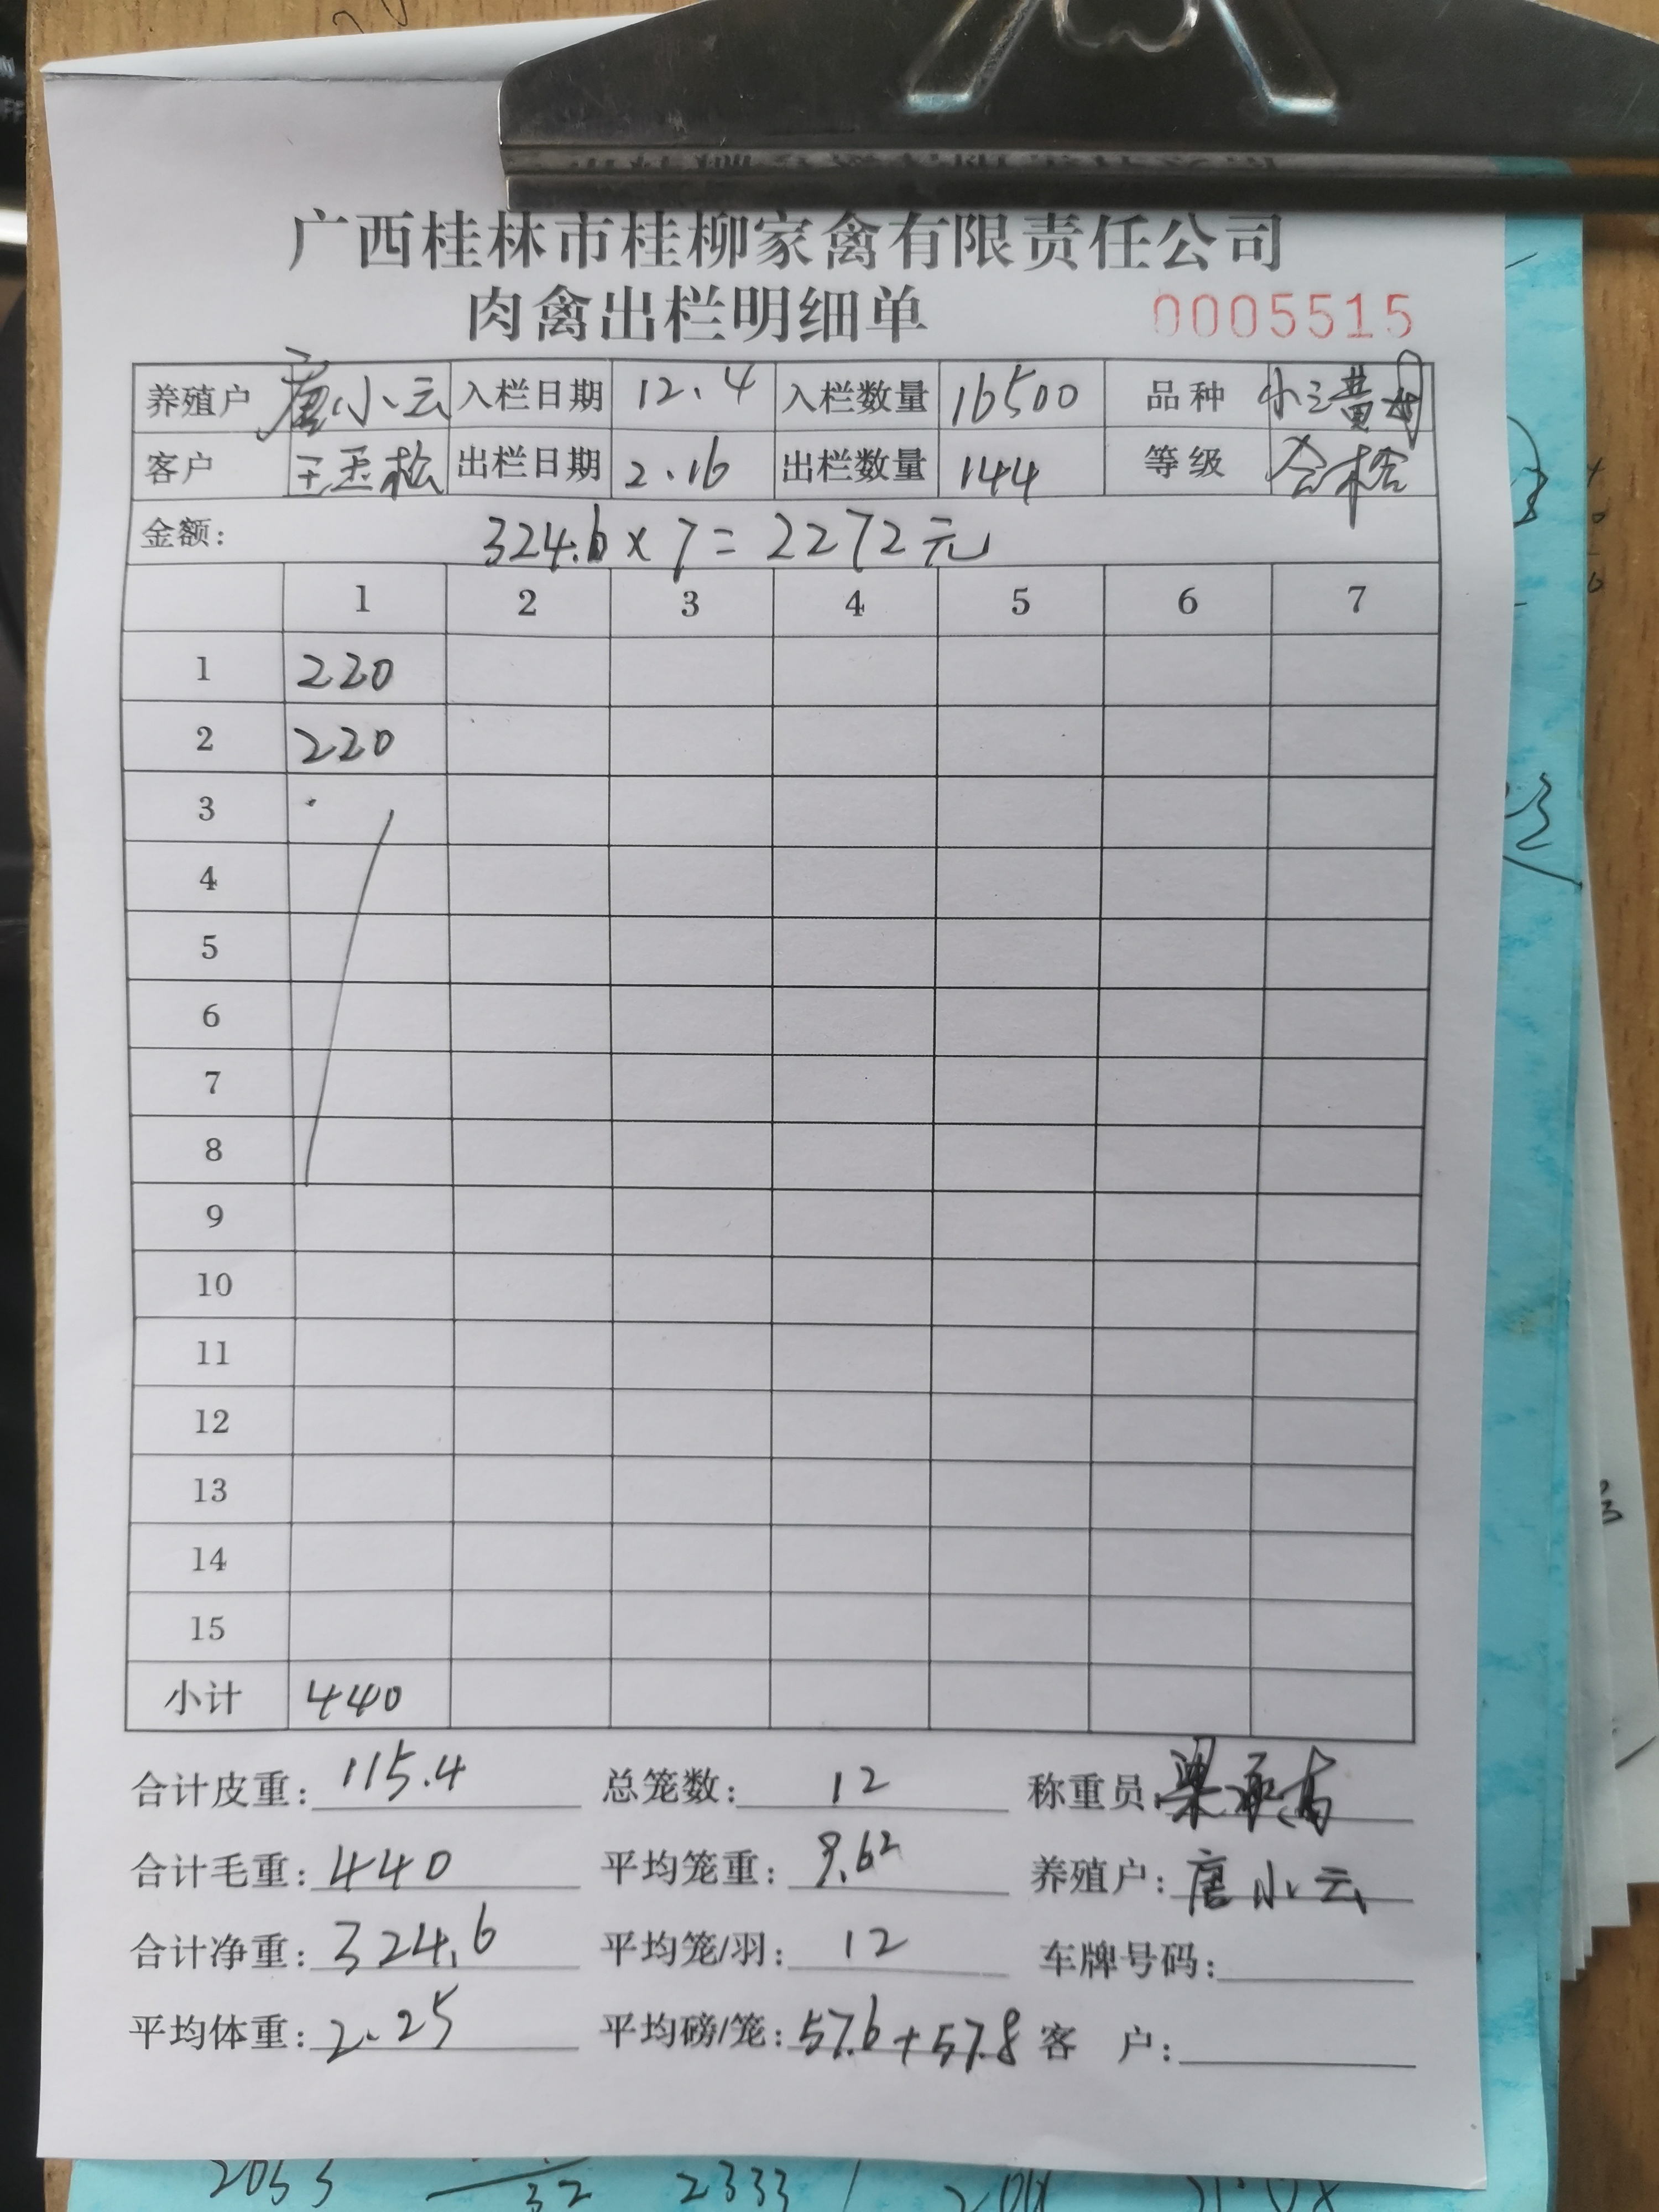 广西桂林市桂柳家禽有限责任公司
肉禽出栏明细单 0005515
养殖户 唐小云 入栏日期 12.4 入栏数量 16500 品种 小三黄母
客户 王玉松 出栏日期 2.16 出栏数量 144 等级 合格
金额: 324.6×7=2272元
1 2 3 4 5 6 7
1 220
2 220
3
4
5
6
7
8
9
10
11
12
13
14
15
小计 440
合计皮重: 115.4 总笼数: 12 称重员:
合计毛重: 440 平均笼重: 9.62 养殖户: 唐小云
合计净重: 324.6 平均笼/羽: 12 车牌号码:
平均体重: 2.25 平均磅/笼: 57.6+57.8 客 户:
32 2333